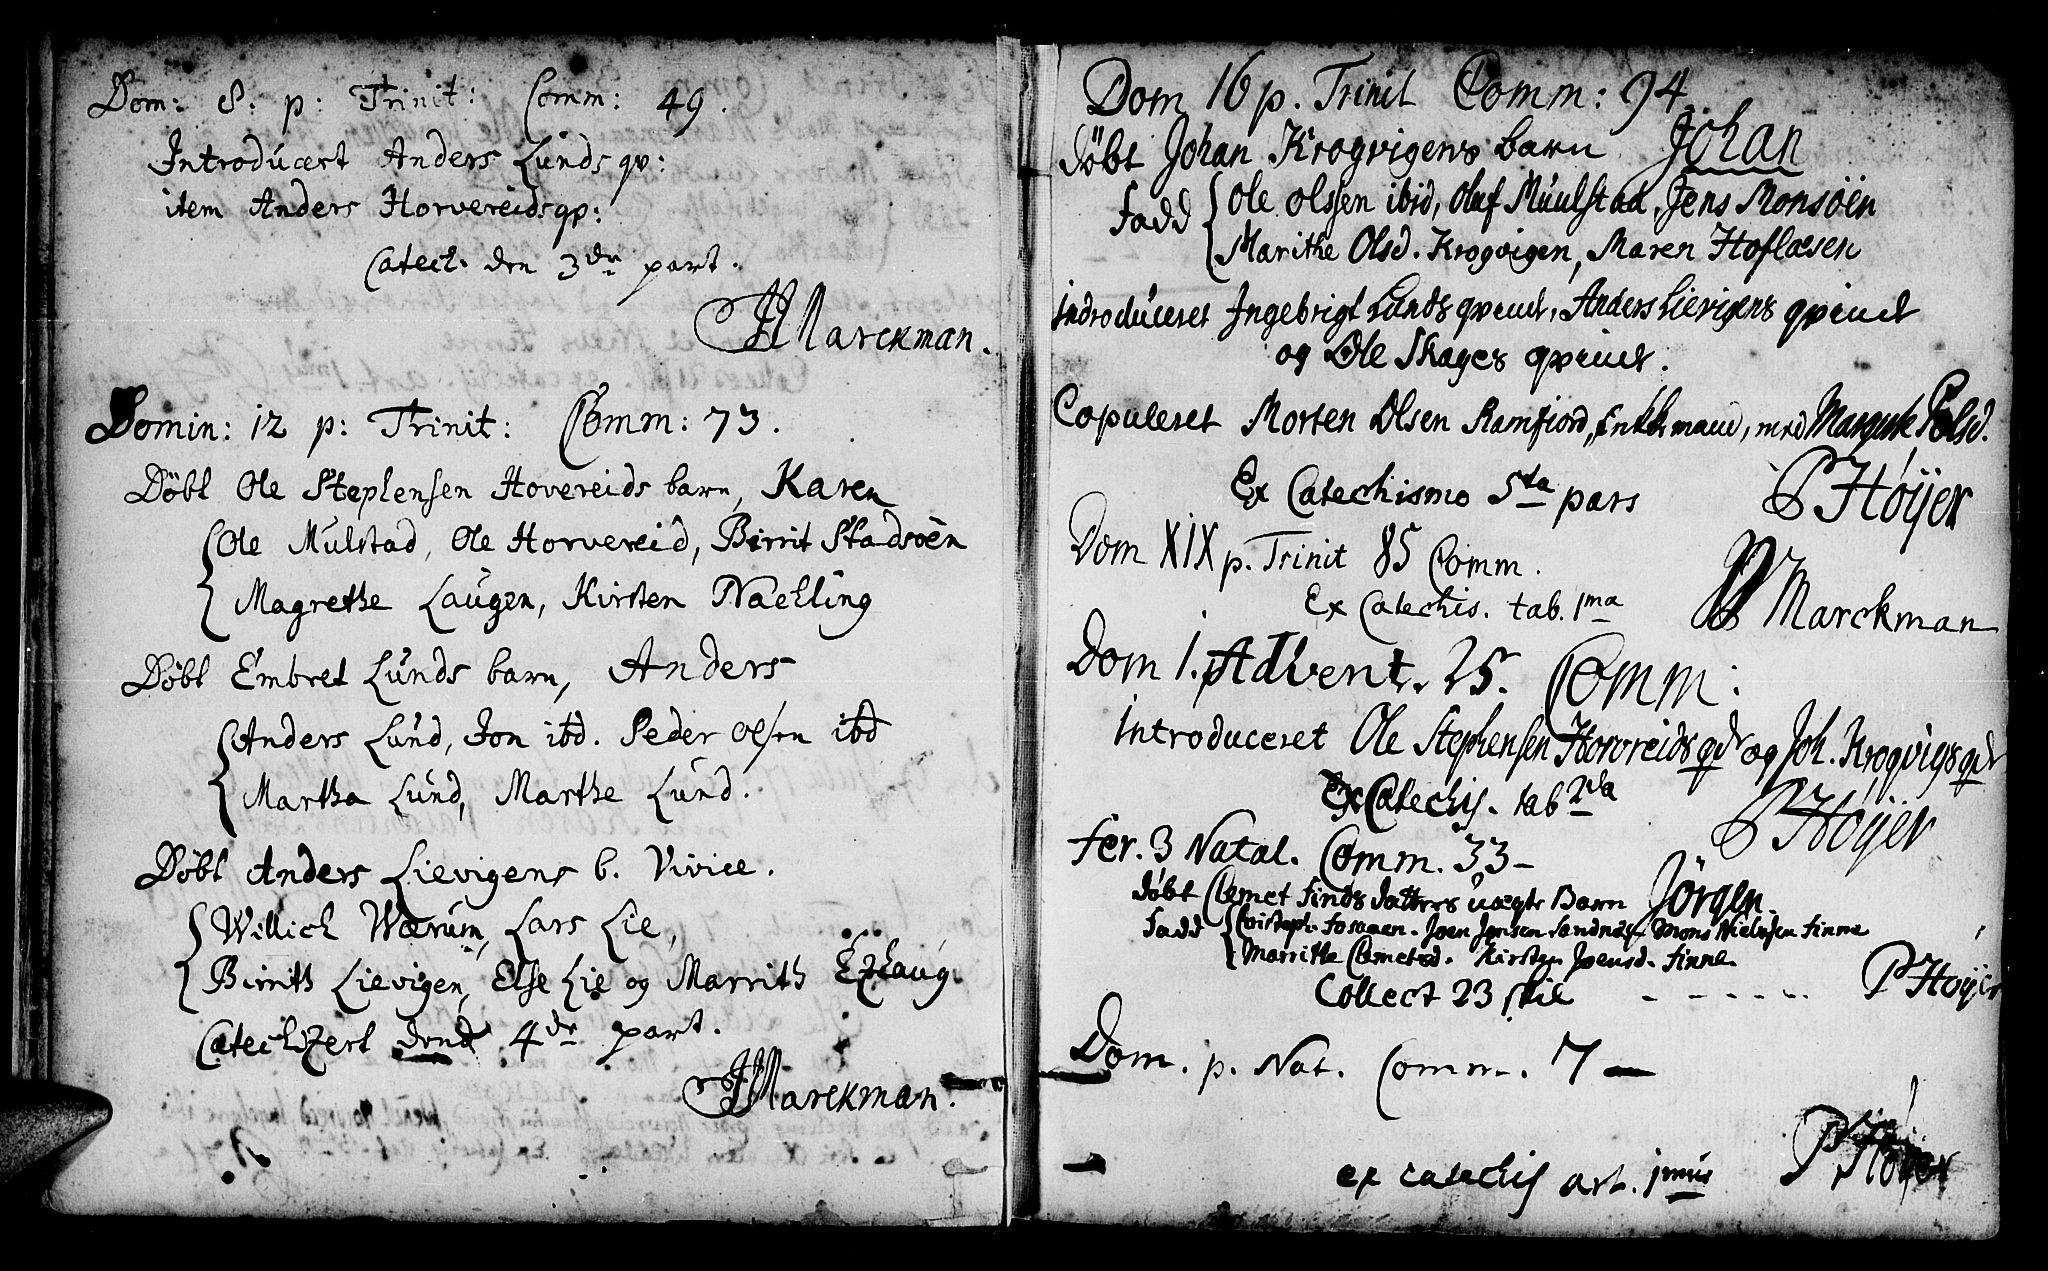 Dom: 8: p: Trinit: Comm: 49.
Introducert Anders Lunds qv:
item Anders Horvereids qv:
Catech. den 3de part.
HMarckman.
Domin: 12 p: Trinit: Comm: 73.
Döbt Ole Stephensen Hovereids barn, Karen
Ole Mulstad, Ole Horvereid, Birrit Stadsöen
Magrethe Laugen, Kirsten Næhling
Döbt Embret Lunds barn, Anders
Anders Lund, Jon ibd. Peder Olsen ibd
Martha Lund, Marthe Lund.
Döbt Anders Lievigens b. Vivice.
Willich Wærum, Lars Lie,
Birrith Lievigen, Else Lie og Marrith
Catechizert 4de part.
HMarckman.
Dom 16 p. Trinit Comm: 94
döbt Johan Krogvigens barn Johan
fadd Ole Olssen ibid, Oluf Muulstad, Jens Monsöen
Marithe Olsd. Krogvigen, Maren Hoflæsen
introduceret Ingebrigt Lunds qvind, Anders Lievigens qvind
og Ole Skages qvind.
Copuleret Morten Olsen Ramfiord, Enkkemand, med
Ex Catechismo 5ta pars
PHöyer
Dom XIX p. Trinit 85 Comm.
Ex Catechis. tab. 1ma
Marckman
Dom 1. Advent. 25. Comm:
Introduceret Ole Stephensen Horvreids qd og Joh. Krogvigs qd
Ex Catechis. tab 2da
PHöyer
fer. 3 Natal. Comm. 33 -
döbt Clemet finds datters uægte Barn Jörgen
fadd Joen Jensen Mons Nielssen finne
Marrithe Clemetsd. Kirsten finne
Collect 23 skil - - - - - -
PHöyer
Dom. p. Nat. Comm. 7 -
ex catechis art. 1mus
PHöyer